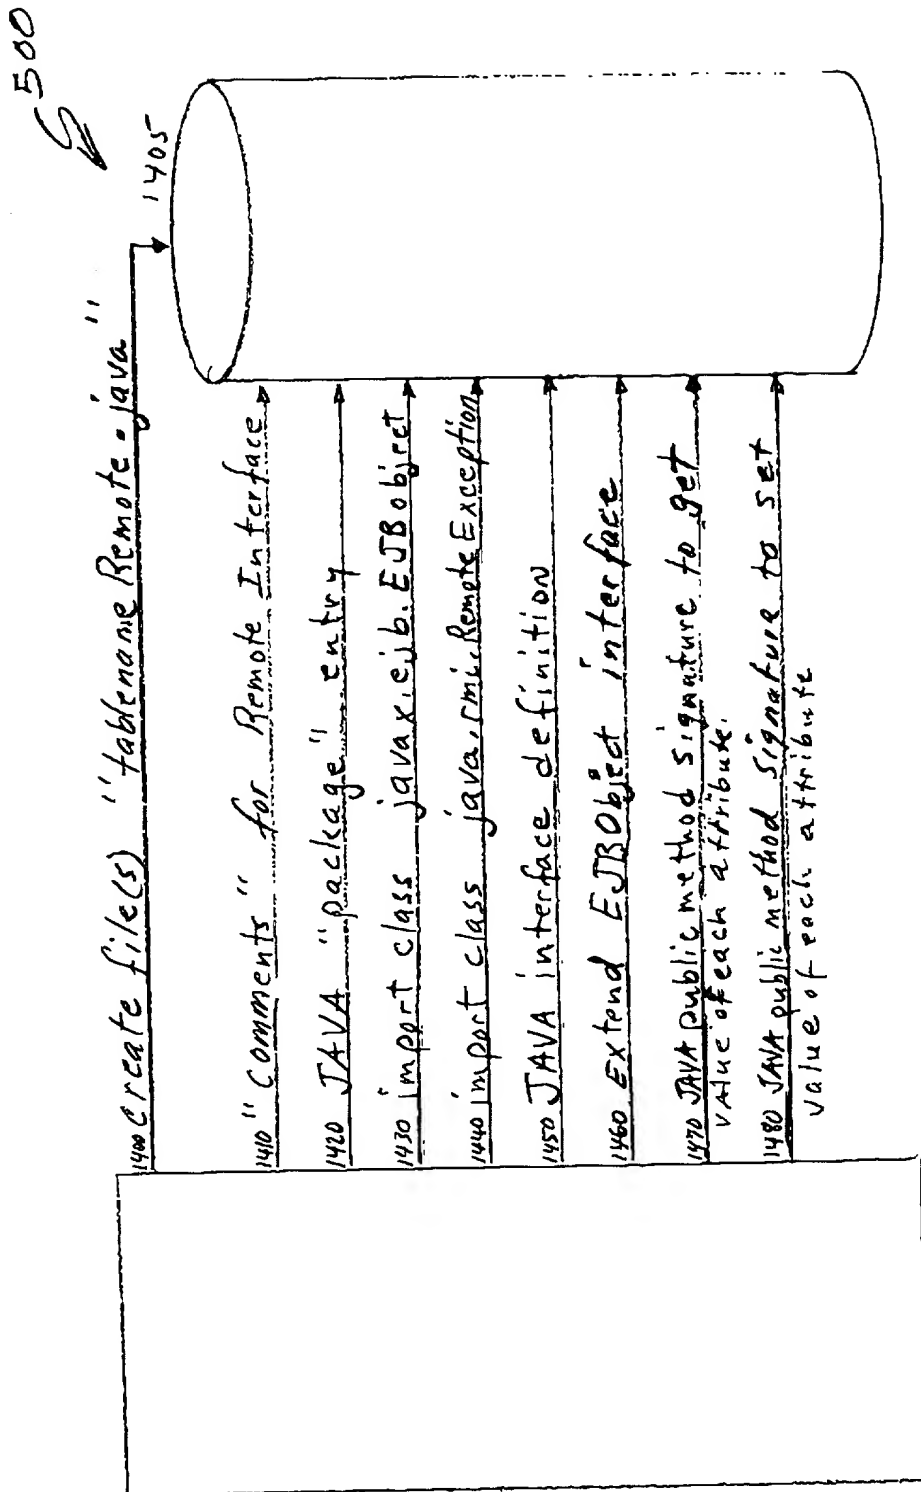 500
1400 Create file(s) "tablenameRemote.java"
1405
1410 "Comments" for Remote Interface
1420 JAVA "package" entry
1430 import class javax.ejb.EJBobject
1440 import class java.rmi.RemoteException
1450 JAVA interface definition
1460 Extend EJBObject interface
1470 JAVA public method signature to get
value of each attribute.
1480 JAVA public method signature to set
value of each attribute